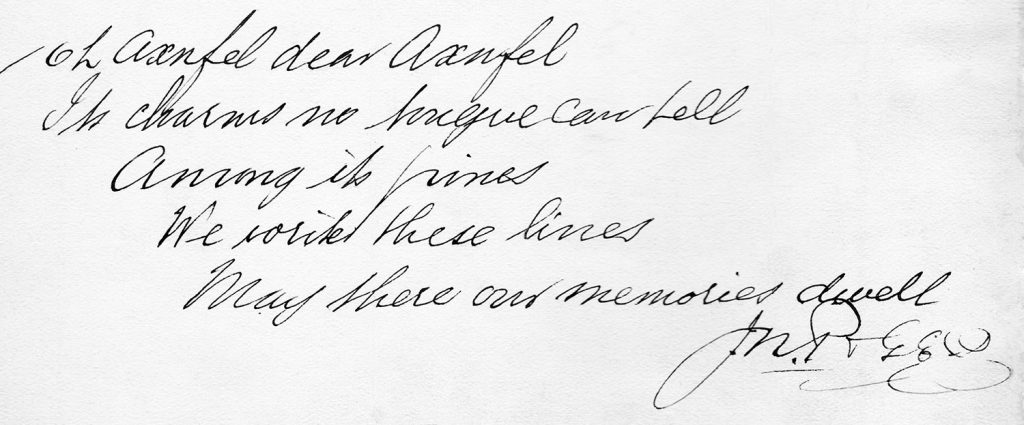 Oh Axenfel dear Axenfel
Its charms no tongue can tell
Among its pines
We write these lines
May there our memories dwell